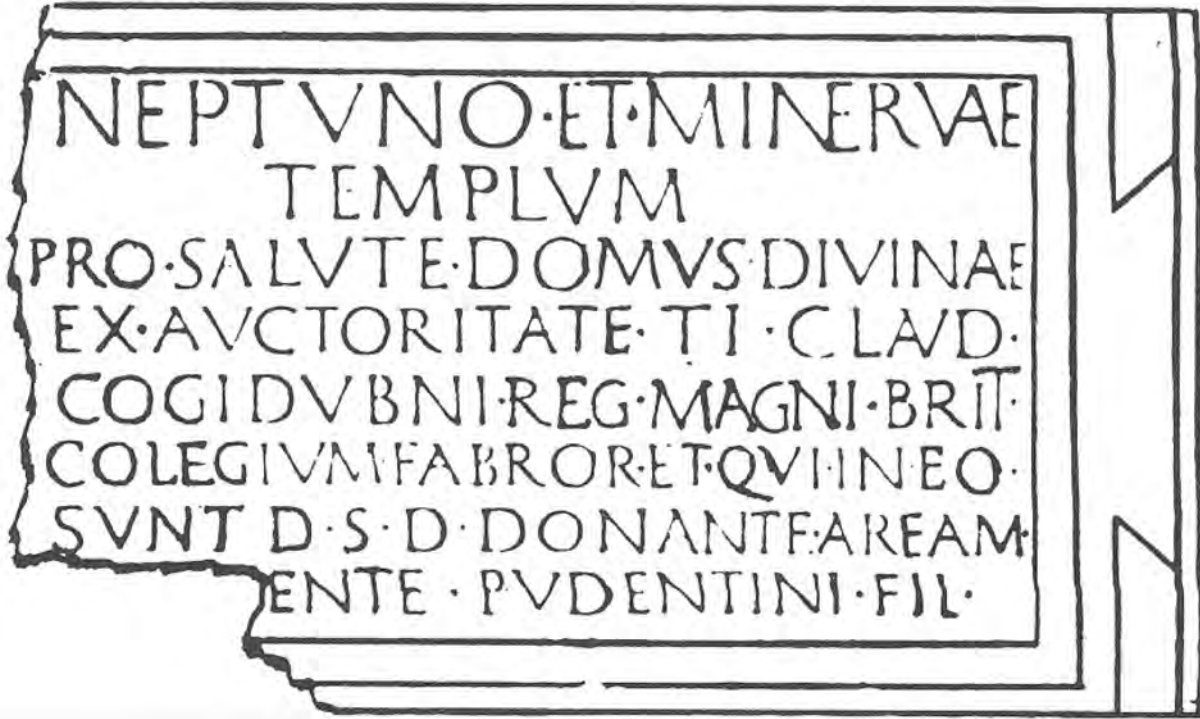 NEPTVNO·ET·MINERVAE
TEMPLVM
PRO·SALVTE·DOMVS·DIVINAE
EX·AVCTORITATE·TI·CLAVD·
COGIDVBNI·REG·MAGNI·BRIT·
COLEGIVM·FABROR·ET·QVI·IN·EO·
SVNT D·S·D·DONANTE·AREAM·
ENTE·PVDENTINI·FIL·